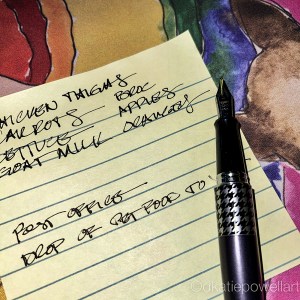 CHICKEN THIGHS
CARROTS BROC
LETTUCE APPLES
GOAT MILK ORANGES
POST OFFICE
DROP OF PET FOOD TO
©dkatiepowellart